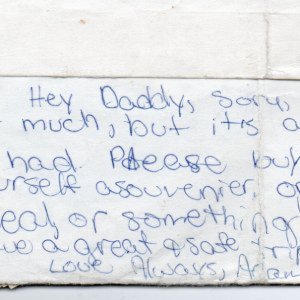 Hey Daddy, sorry,
much, but it's a
had. Please buy
urself a souvenir, or
eal, or something!
ve a great & safe trip
Love Always, Aram